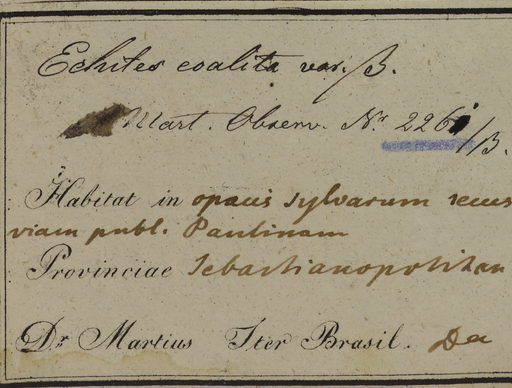 Echites coalita var. β.
Mart. Observ. Nr. 226 /β.
Habitat in opacis sylvarum secus
viam publ. Paulinam
Provinciae Sebastianopolitan
Dr. Martius Iter Brasil. De